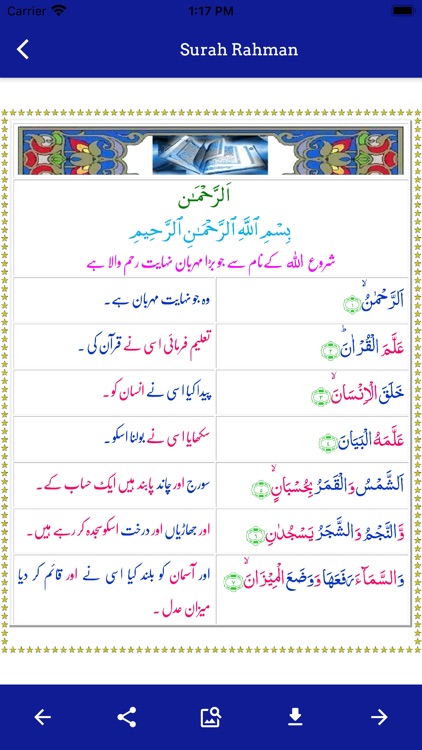 Carrier 1:17 PM
Surah Rahman
اَلرَّحْمٰن
بِسْمِ ٱللَّهِ ٱلرَّحْمَٰنِ ٱلرَّحِيمِ
شروع اللہ کے نام سے جو بڑا مہربان نہایت رحم والا ہے
اَلرَّحْمٰنُۙ ۱
وہ جو نہایت مہربان ہے۔
عَلَّمَ الْقُرْاٰنَؕ ۲
تعلیم فرمائی اسی نے قرآن کی ۔
خَلَقَ الْاِنْسَانَۙ ۳
پیدا کیا اسی نے انسان کو۔
عَلَّمَهُ الْبَيَانَ ۴
سکھایا اسی نے بولنا اسکو۔
اَلشَّمْسُ وَالْقَمَرُ بِحُسْبَانٍۙ
سورج اور چاند پابند ہیں ایک حساب کے۔
وَّالنَّجْمُ وَالشَّجَرُ يَسْجُدٰنِ ۶
اور جھاڑیاں اور درخت اسکو سجدہ کر رہے ہیں۔
وَالسَّمَآءَ رَفَعَهَا وَوَضَعَ الْمِيْزَانَۙ ۷
اور آسمان کو بلند کیا اسی نے اور قائم کر دیا
میزان عدل ۔